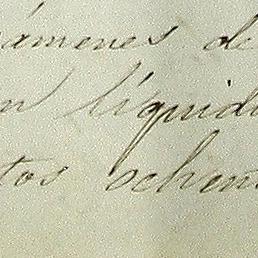 xámenes de
on líquid
tos ochen